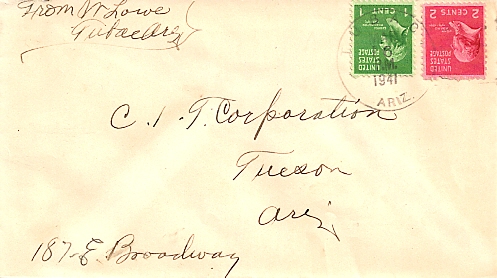 From W Lowe
Tubac Ariz
1 CENT 1
UNITED STATES POSTAGE
2 CENTS 2
UNITED STATES POSTAGE
1941
ARIZ.
C. I. T. Corporation
Tucson
Ariz
187-E Broadway